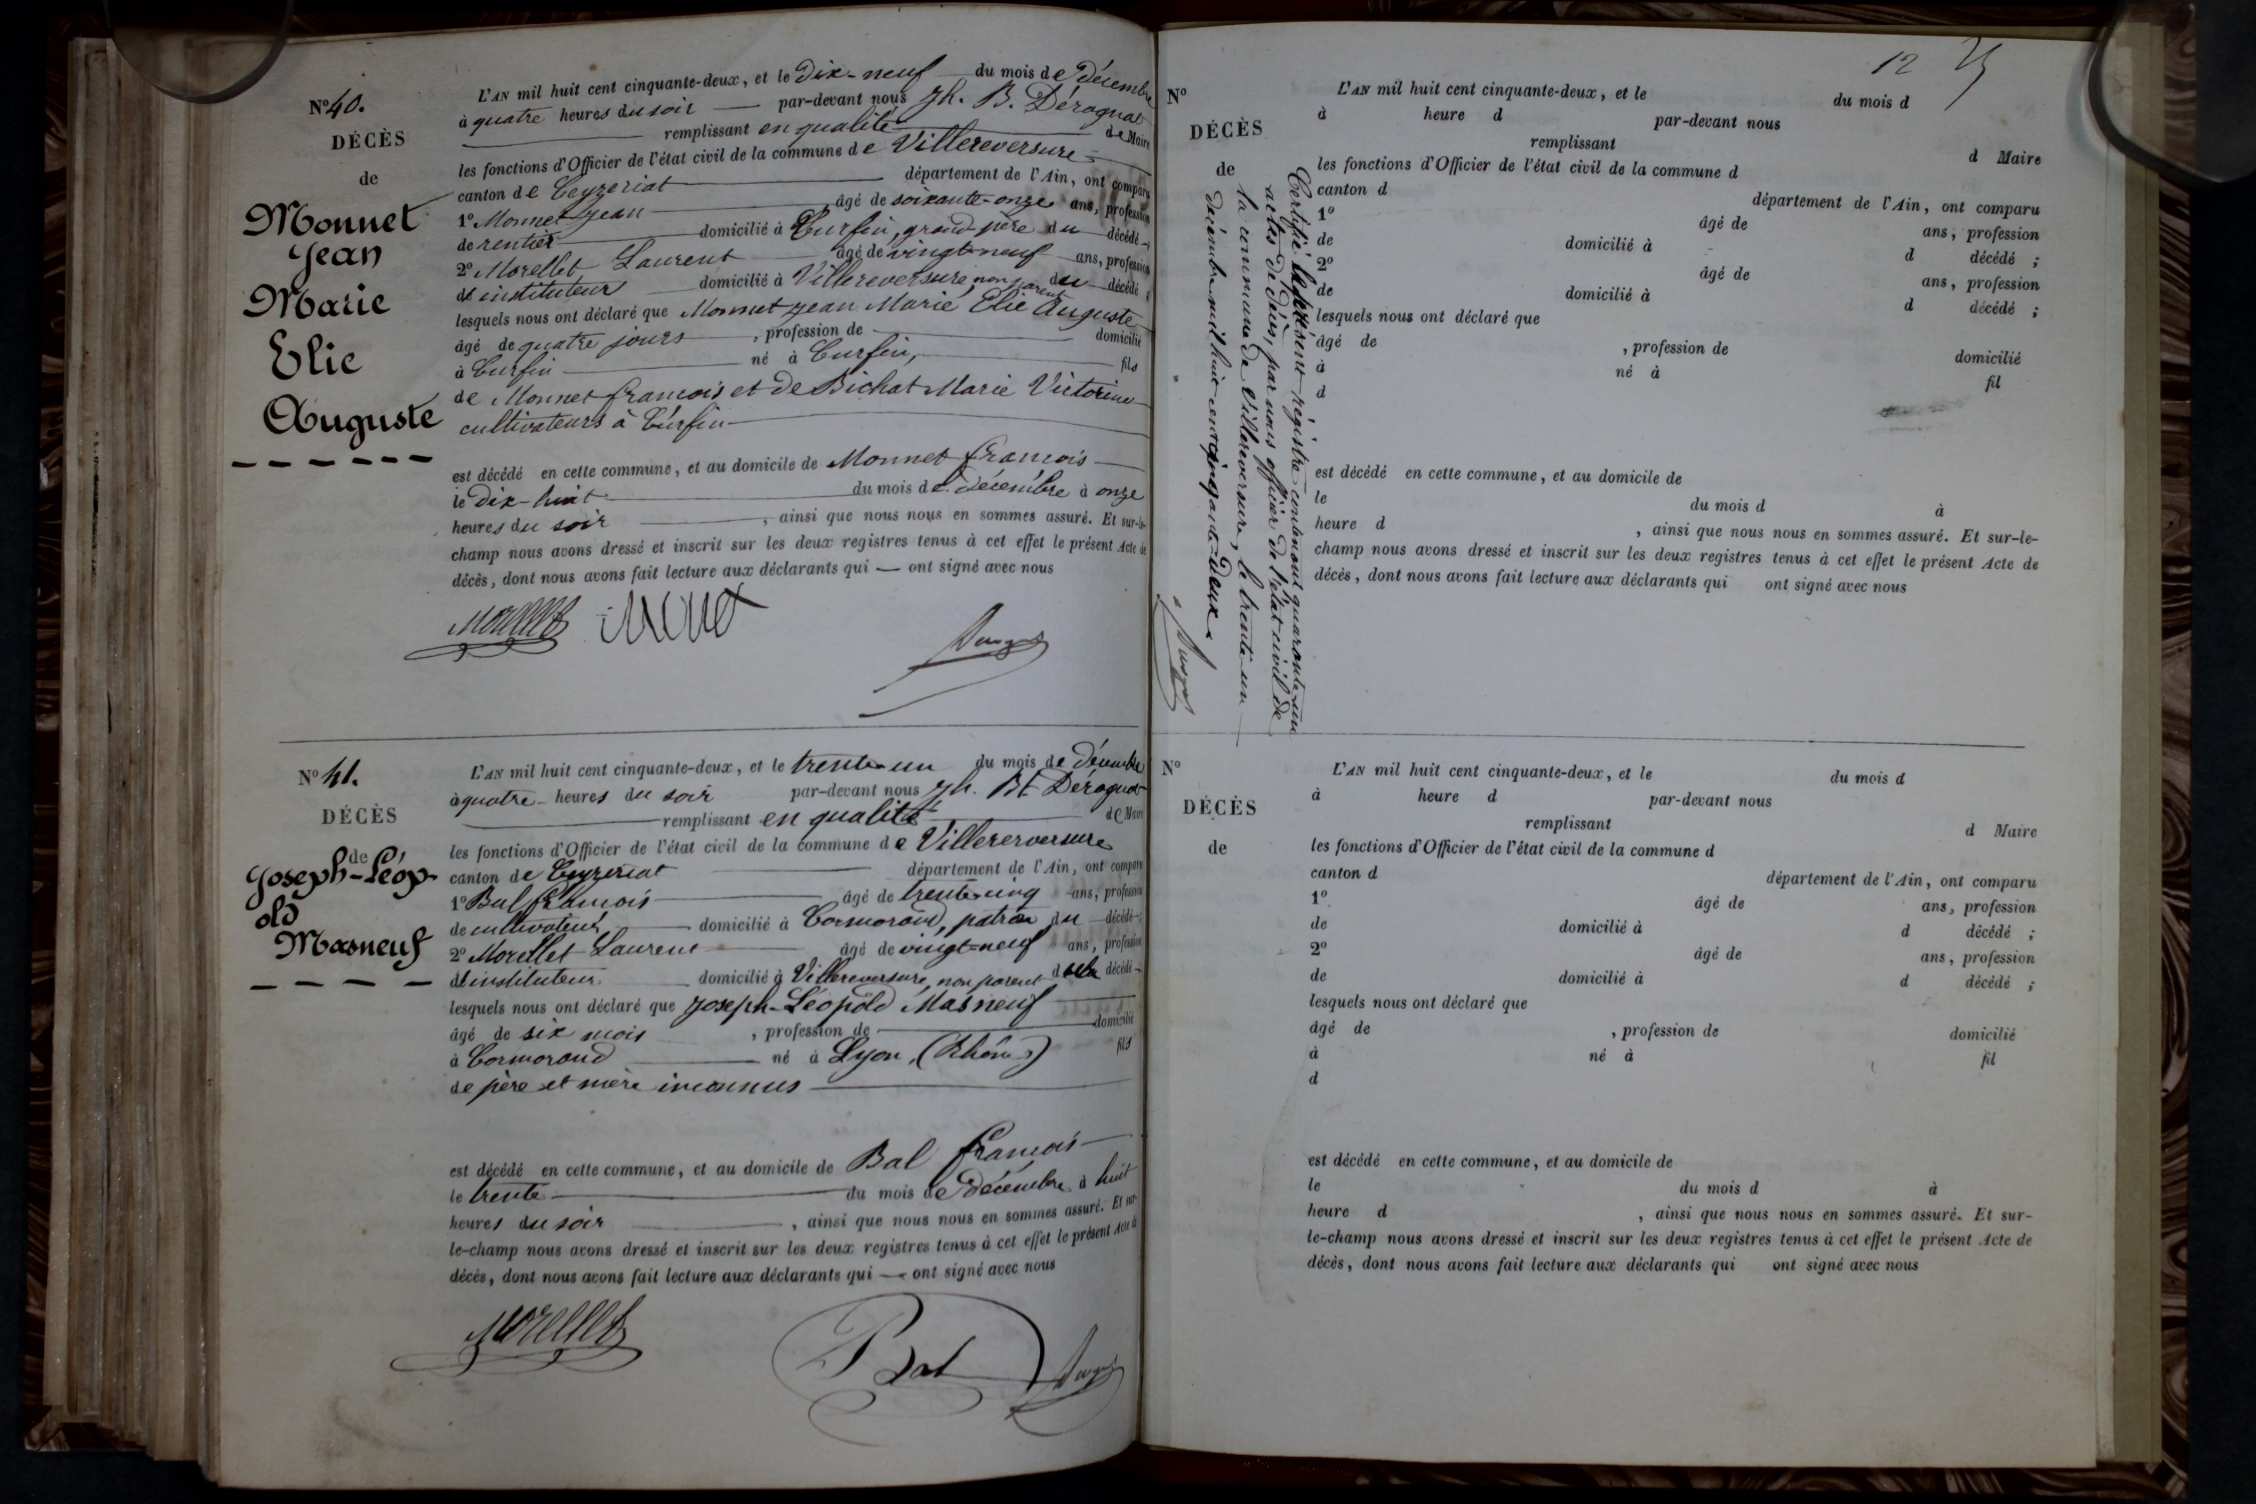 N° 40.
DÉCÈS
de
Monnet
Jean
Marie
Elie
Auguste
L'AN mil huit cent cinquante-deux, et le dix-neuf du mois de Décembre
à quatre heures du soir par-devant nous Jh. B. Dérognat
remplissant en qualité de Maire
les fonctions d'Officier de l'état civil de la commune de Villereversure
canton de Ceyzeriat département de l'Ain, ont comparu
1° Monnet Jean âgé de soixante-onze ans, profession
de rentier domicilié à Curfin, grand père du décédé;
2° Morellet Laurent âgé de vingt-neuf ans, profession
d'instituteur domicilié à Villereversure, non parent du décédé;
lesquels nous ont déclaré que Monnet Jean Marie Elie Auguste
âgé de quatre jours, profession de domicilié
à Curfin né à Curfin, fils
de Monnet françois et de Bichat Marie Victorine
cultivateurs à Curfin
est décédé en cette commune, et au domicile de Monnet françois
le dix-huit du mois de décembre à onze
heures du soir, ainsi que nous nous en sommes assuré. Et sur-le-
champ nous avons dressé et inscrit sur les deux registres tenus à cet effet le présent Acte de
décès, dont nous avons fait lecture aux déclarants qui — ont signé avec nous
Morellet
N° 41.
DÉCÈS
de
Joseph-Léop-
old
Masneuf
L'AN mil huit cent cinquante-deux, et le trente-un du mois de décembre
à quatre heures du soir par-devant nous Jh. Bt Dérognat
remplissant en qualité de Maire
les fonctions d'Officier de l'état civil de la commune de Villereversure
canton de Ceyzeriat département de l'Ain, ont comparu
1° Bal françois âgé de trente-cinq ans, profession
de cultivateur domicilié à Cormorand, patron du décédé;
2° Morellet Laurent âgé de vingt-neuf ans, profession
d'instituteur domicilié à Villereversure, non parent d décédé
lesquels nous ont déclaré que Joseph-Léopold Masneuf
âgé de six mois, profession de domicilié
à Cormorand né à Lyon, (Rhône) fils
de père et mère inconnus
est décédé en cette commune, et au domicile de Bal françois
le trente du mois de Décembre à huit
heures du soir, ainsi que nous nous en sommes assuré. Et sur-
le-champ nous avons dressé et inscrit sur les deux registres tenus à cet effet le présent Acte de
décès, dont nous avons fait lecture aux déclarants qui — ont signé avec nous
Morellet Bal
12
N°
DÉCÈS
de
Certifié le présent régistre contenant quarante-un
actes de décès, par nous officier de l'état civil de
la commune de Villereversure, le trente-un
décembre mil huit cent cinquante-deux.
L'AN mil huit cent cinquante-deux, et le du mois d
à heure d par-devant nous
remplissant d Maire
les fonctions d'Officier de l'état civil de la commune d
canton d département de l'Ain, ont comparu
1° âgé de ans, profession
de domicilié à d décédé ;
2° âgé de ans, profession
de domicilié à d décédé ;
lesquels nous ont déclaré que
âgé de , profession de domicilié
à né à fil
d
est décédé en cette commune, et au domicile de
le du mois d à
heure d , ainsi que nous nous en sommes assuré. Et sur-le-
champ nous avons dressé et inscrit sur les deux registres tenus à cet effet le présent Acte de
décès, dont nous avons fait lecture aux déclarants qui ont signé avec nous
N°
DÉCÈS
de
L'AN mil huit cent cinquante-deux, et le du mois d
à heure d par-devant nous
remplissant d Maire
les fonctions d'Officier de l'état civil de la commune d
canton d département de l'Ain, ont comparu
1° âgé de ans, profession
de domicilié à d décédé ;
2° âgé de ans, profession
de domicilié à d décédé ;
lesquels nous ont déclaré que
âgé de , profession de domicilié
à né à fil
d
est décédé en cette commune, et au domicile de
le du mois d à
heure d , ainsi que nous nous en sommes assuré. Et sur-
le-champ nous avons dressé et inscrit sur les deux registres tenus à cet effet le présent Acte de
décès, dont nous avons fait lecture aux déclarants qui ont signé avec nous